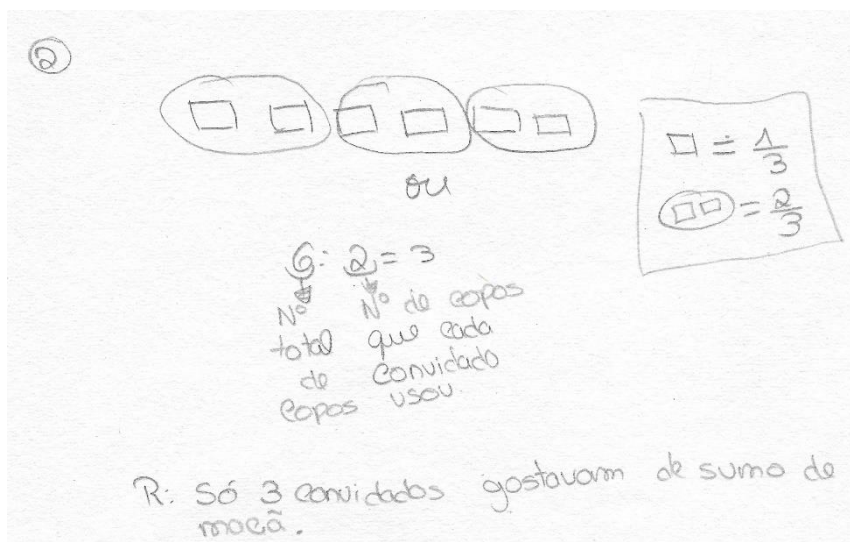 2
□ = 1/3
□□ = 2/3
ou
6 : 2 = 3
Nº total de copos
Nº de copos que cada convidado usou.
R: Só 3 convidados gostavam de sumo de
maçã.